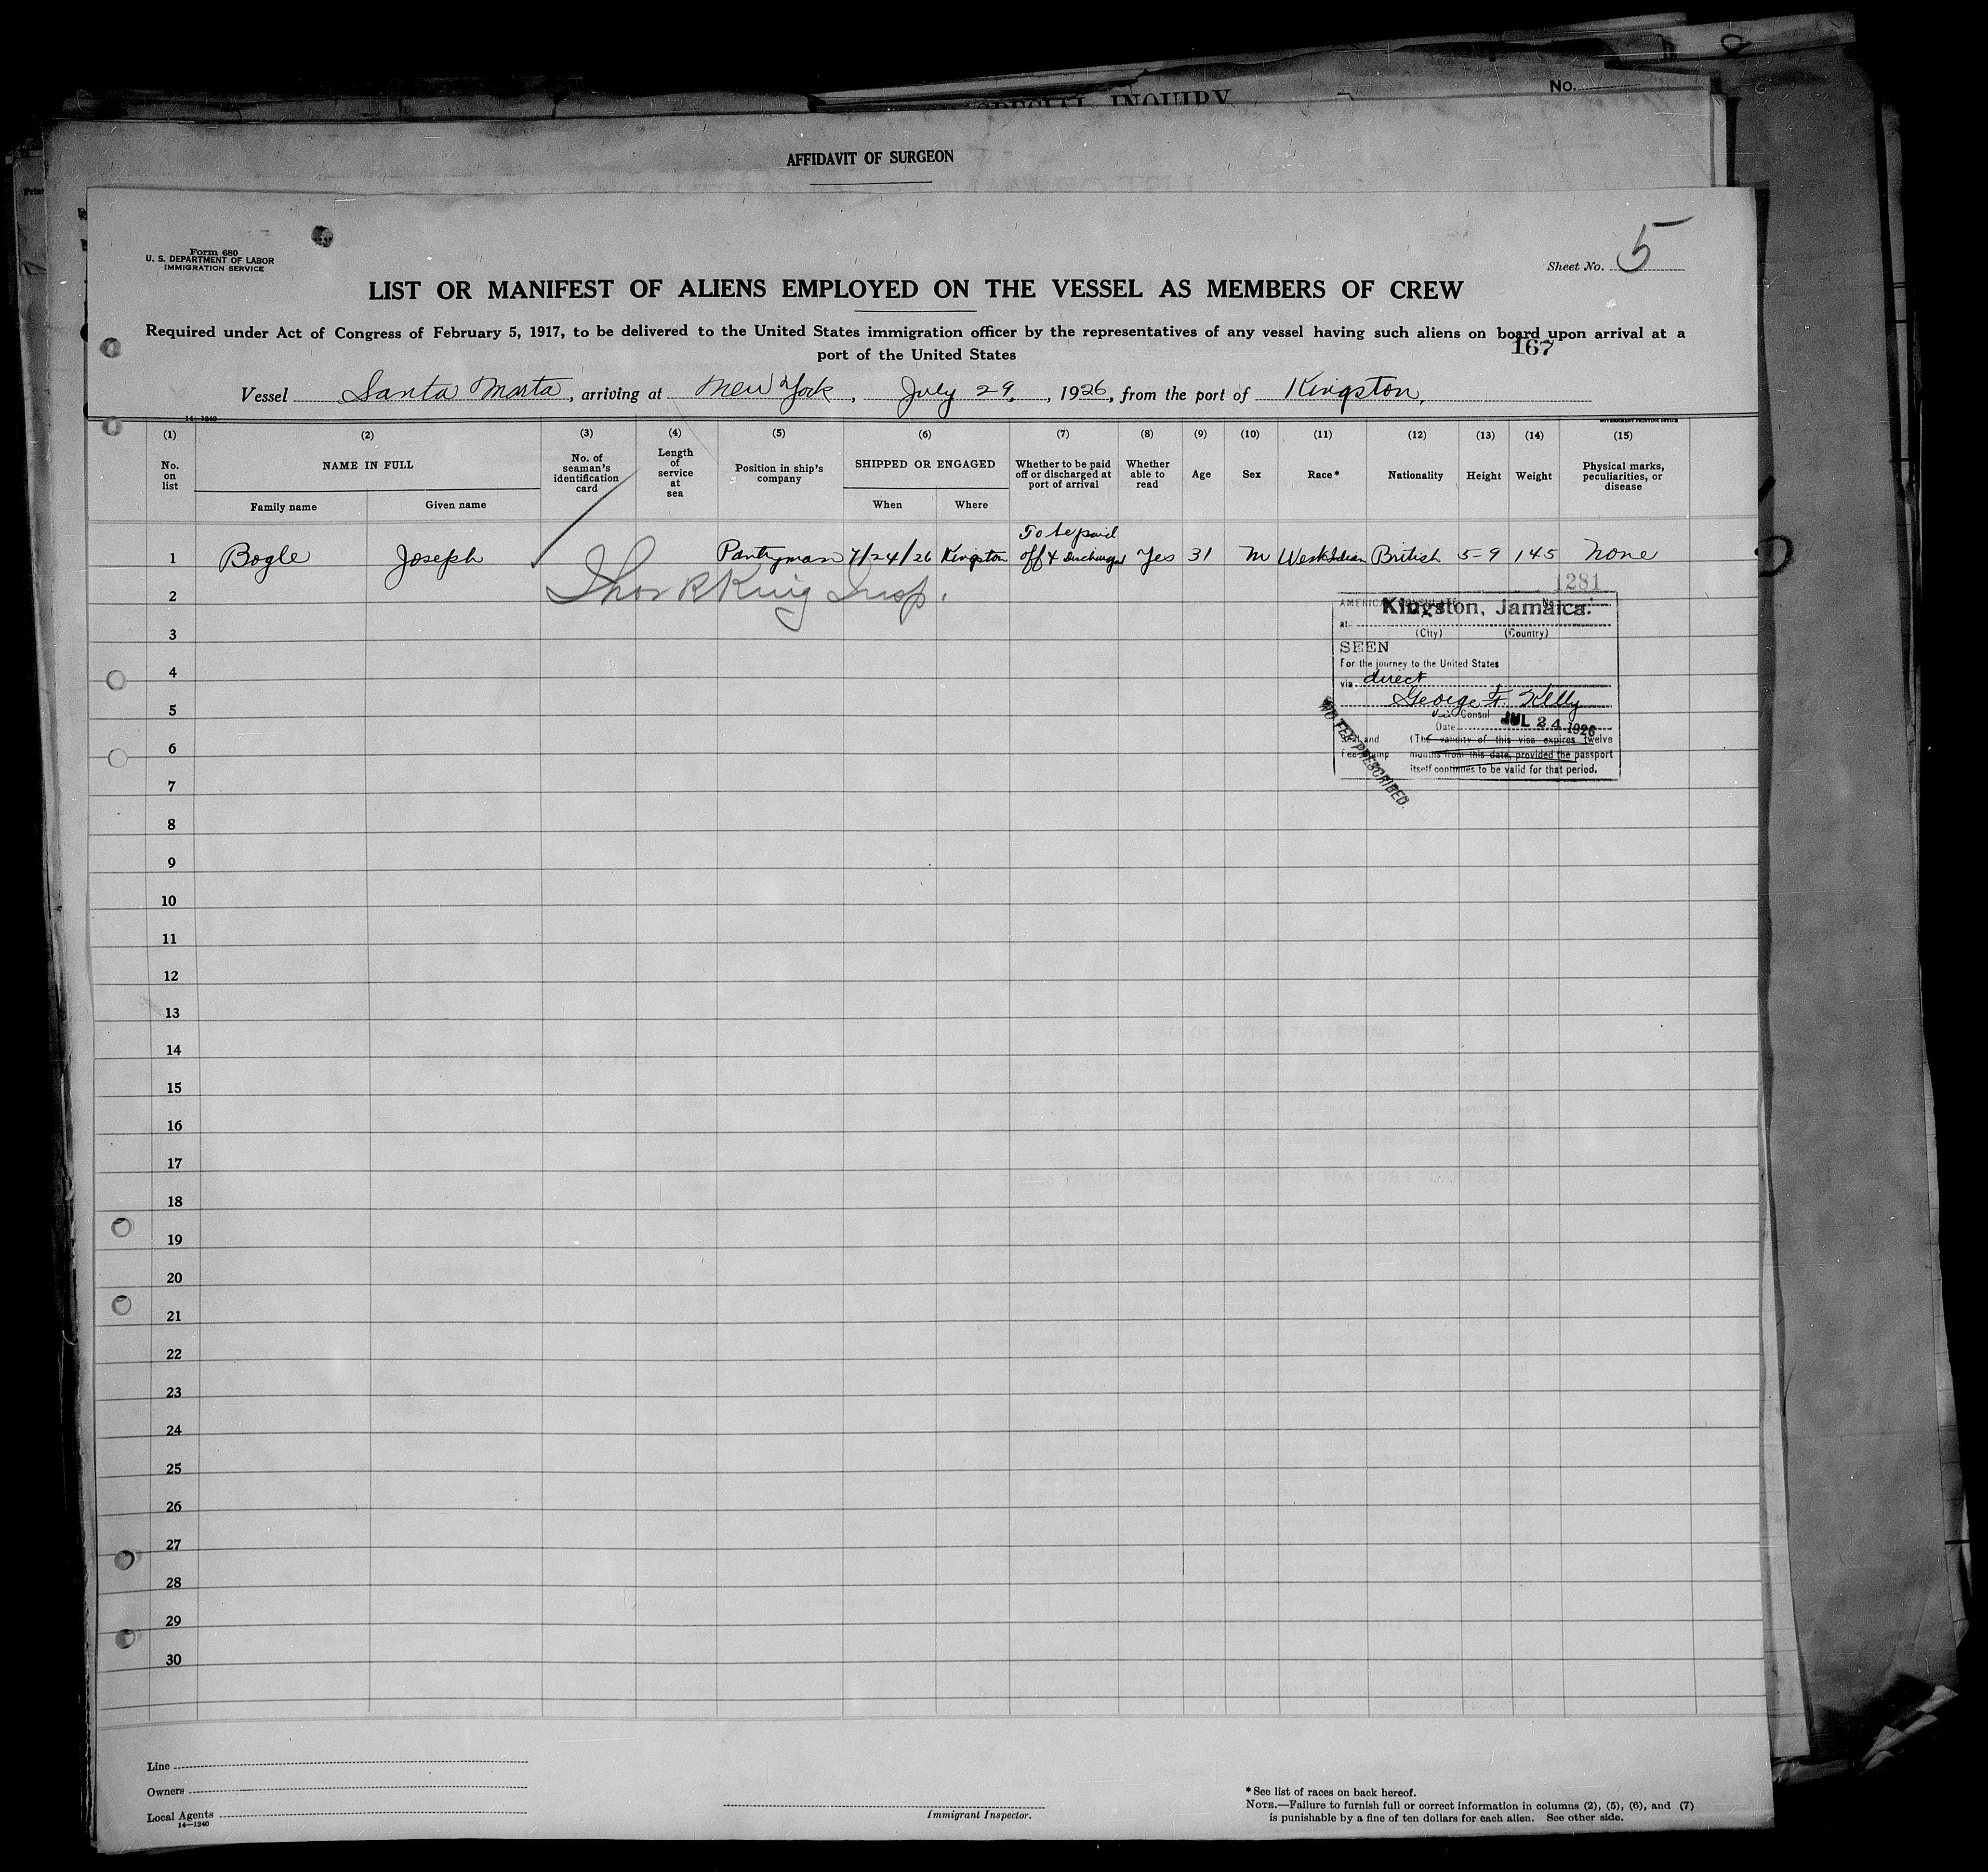 SPECIAL INQUIRY
No.
AFFIDAVIT OF SURGEON
Form 680
U. S. DEPARTMENT OF LABOR
IMMIGRATION SERVICE
Sheet No. 5
LIST OR MANIFEST OF ALIENS EMPLOYED ON THE VESSEL AS MEMBERS OF CREW
Required under Act of Congress of February 5, 1917, to be delivered to the United States immigration officer by the representatives of any vessel having such aliens on board upon arrival at a
port of the United States
167
Vessel Santa Marta, arriving at New York, July 29, 1926, from the port of Kingston,
14—1240
GOVERNMENT PRINTING OFFICE
(1) (2) (3) (4) (5) (6) (7) (8) (9) (10) (11) (12) (13) (14) (15)
No. on list
NAME IN FULL
Family name
Given name
No. of seaman's identification card
Length of service at sea
Position in ship's company
SHIPPED OR ENGAGED
When
Where
Whether to be paid off or discharged at port of arrival
Whether able to read
Age
Sex
Race*
Nationality
Height
Weight
Physical marks, peculiarities, or disease
To be paid
1 Bogle Joseph Pantryman 7/24/26 Kingston off & discharged Yes 31 M West Indian British 5-9 145 None
Thos R King Insp.
1281
AMERICAN CONSULATE
Kingston, Jamaica.
at
(City) (Country)
SEEN
For the journey to the United States
via direct
George F. Kelly
Vice Consul
Date JUL 24 1926
Seal and
Fee Stamp
(The validity of this visa expires twelve
months from this date, provided the passport
itself continues to be valid for that period.
NO FEE PRESCRIBED.
2
3
4
5
6
7
8
9
10
11
12
13
14
15
16
17
18
19
20
21
22
23
24
25
26
27
28
29
30
Line
Owners
Local Agents
14—1240
Immigrant Inspector.
*See list of races on back hereof.
NOTE.—Failure to furnish full or correct information in columns (2), (5), (6), and (7)
is punishable by a fine of ten dollars for each alien. See other side.